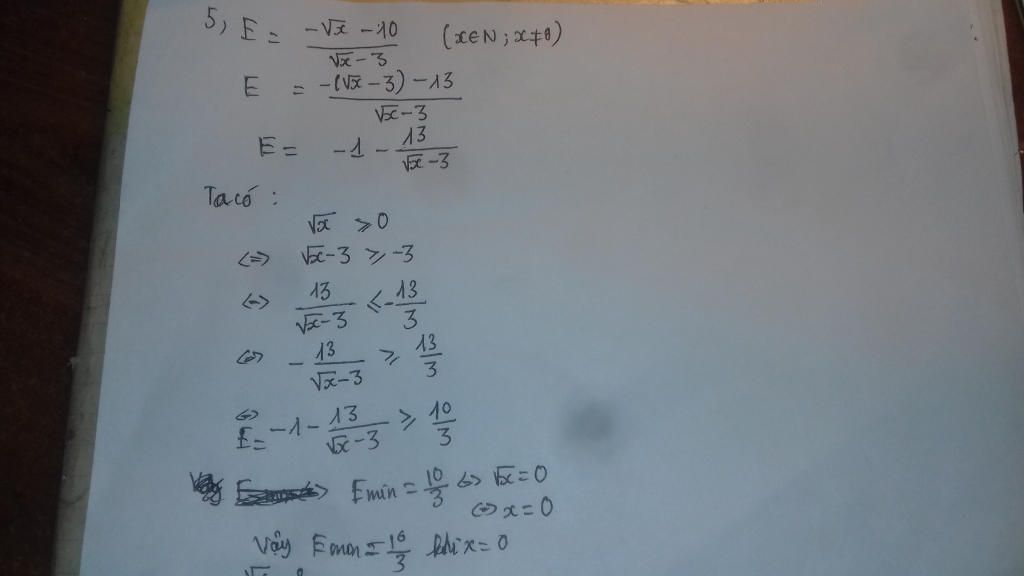 5, E = (-√x - 10)/(√x - 3) (x∈N; x≠9)
E = (-(√x - 3) - 13)/(√x - 3)
E = -1 - 13/(√x - 3)
Ta có :
√x ≥ 0
<=> √x - 3 ≥ -3
<=> 13/(√x - 3) ≤ -13/3
<=> -13/(√x - 3) ≥ 13/3
<=> E = -1 - 13/(√x - 3) ≥ 10/3
Emin = 10/3 <=> √x = 0
<=> x = 0
Vậy Emin = 10/3 khi x = 0